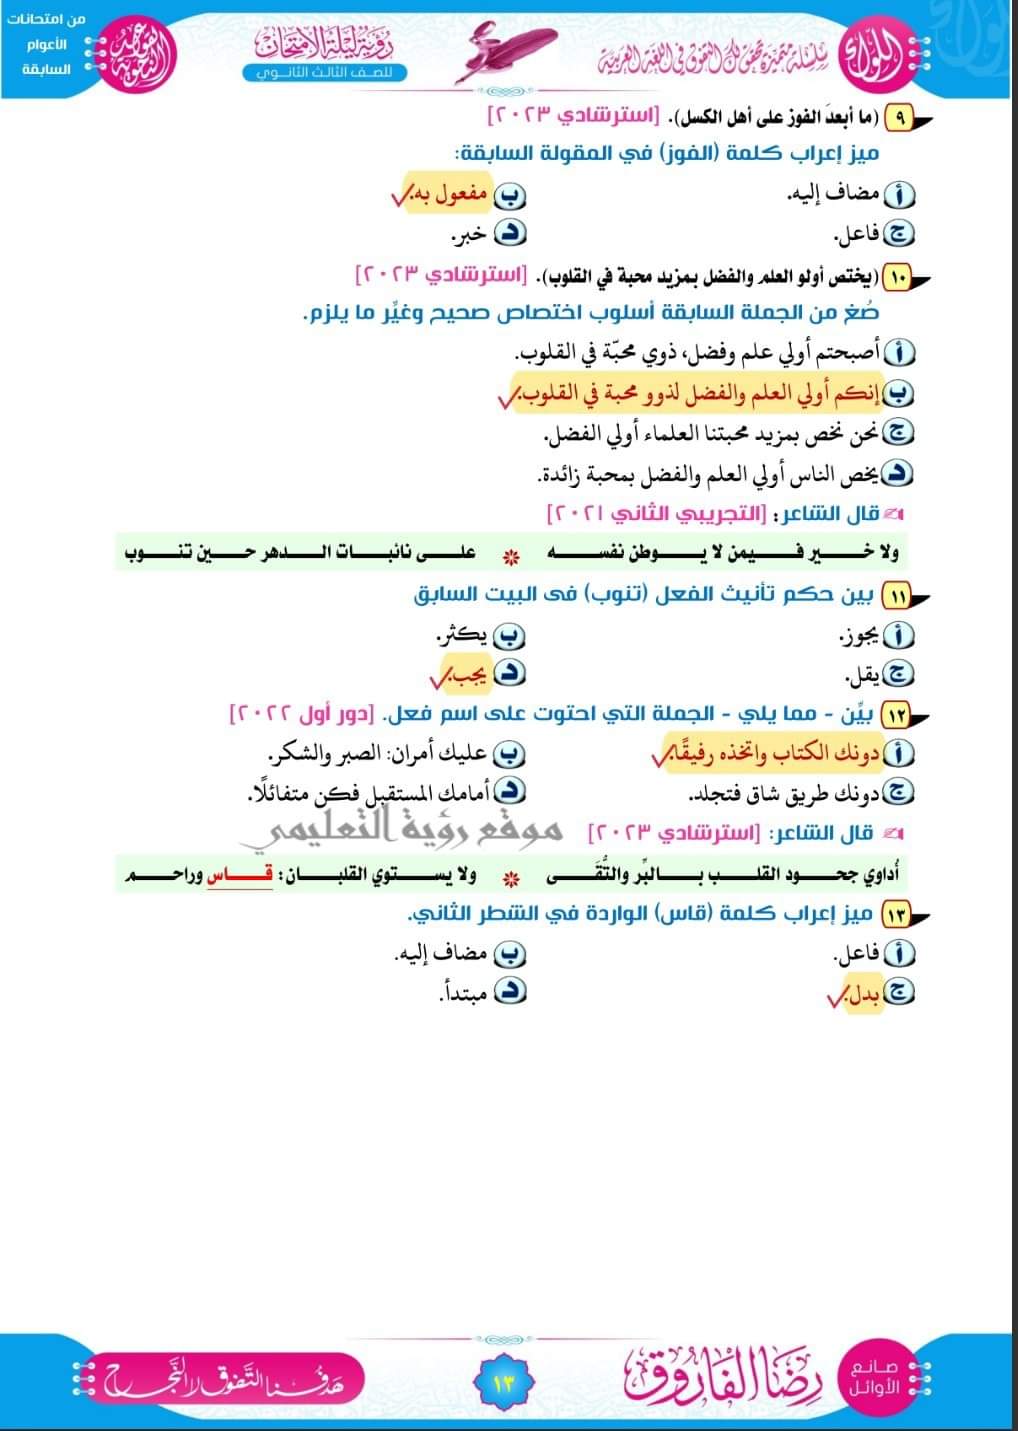 من امتحانات
الأعوام
السابقة
القواعد النحوية
رؤية ليلة الامتحان
للصف الثالث الثانوي
سلسلة متميزة تحقق لك التفوق في اللغة العربية
اللواء
٩ (ما أبعدَ الفوز على أهل الكسل). [استرشادي ٢٠٢٣]
ميز إعراب كلمة (الفوز) في المقولة السابقة:
أ مضاف إليه. ب مفعول به.
ج فاعل. د خبر.
١٠ (يختص أولو العلم والفضل بمزيد محبة في القلوب). [استرشادي ٢٠٢٣]
صُغ من الجملة السابقة أسلوب اختصاص صحيح وغيِّر ما يلزم.
أ أصبحتم أولي علم وفضل، ذوي محبّة في القلوب.
ب إنكم أولي العلم والفضل لذوو محبة في القلوب.
ج نحن نخص بمزيد محبتنا العلماء أولي الفضل.
د يخص الناس أولي العلم والفضل بمحبة زائدة.
قال الشاعر: [التجريبي الثاني ٢٠٢١]
ولا خير فيمن لا يوطن نفسه * على نائبات الدهر حين تنوب
١١ بين حكم تأنيث الفعل (تنوب) فى البيت السابق
أ يجوز. ب يكثر.
ج يقل. د يجب.
١٢ بيِّن - مما يلي - الجملة التي احتوت على اسم فعل. [دور أول ٢٠٢٢]
أ دونك الكتاب واتخذه رفيقًا. ب عليك أمران: الصبر والشكر.
ج دونك طريق شاق فتجلد. د أمامك المستقبل فكن متفائلًا.
موقع رؤية التعليمي
قال الشاعر: [استرشادي ٢٠٢٣]
أُداوي جحود القلب بالبِّر والتُّقَى * ولا يستوي القلبان: قاس وراحم
١٣ ميز إعراب كلمة (قاس) الواردة في الشطر الثاني.
أ فاعل. ب مضاف إليه.
ج بدل. د مبتدأ.
صانع
الأوائل
رضا الفاروق
١٣
هدفنا التفوق لا النجاح